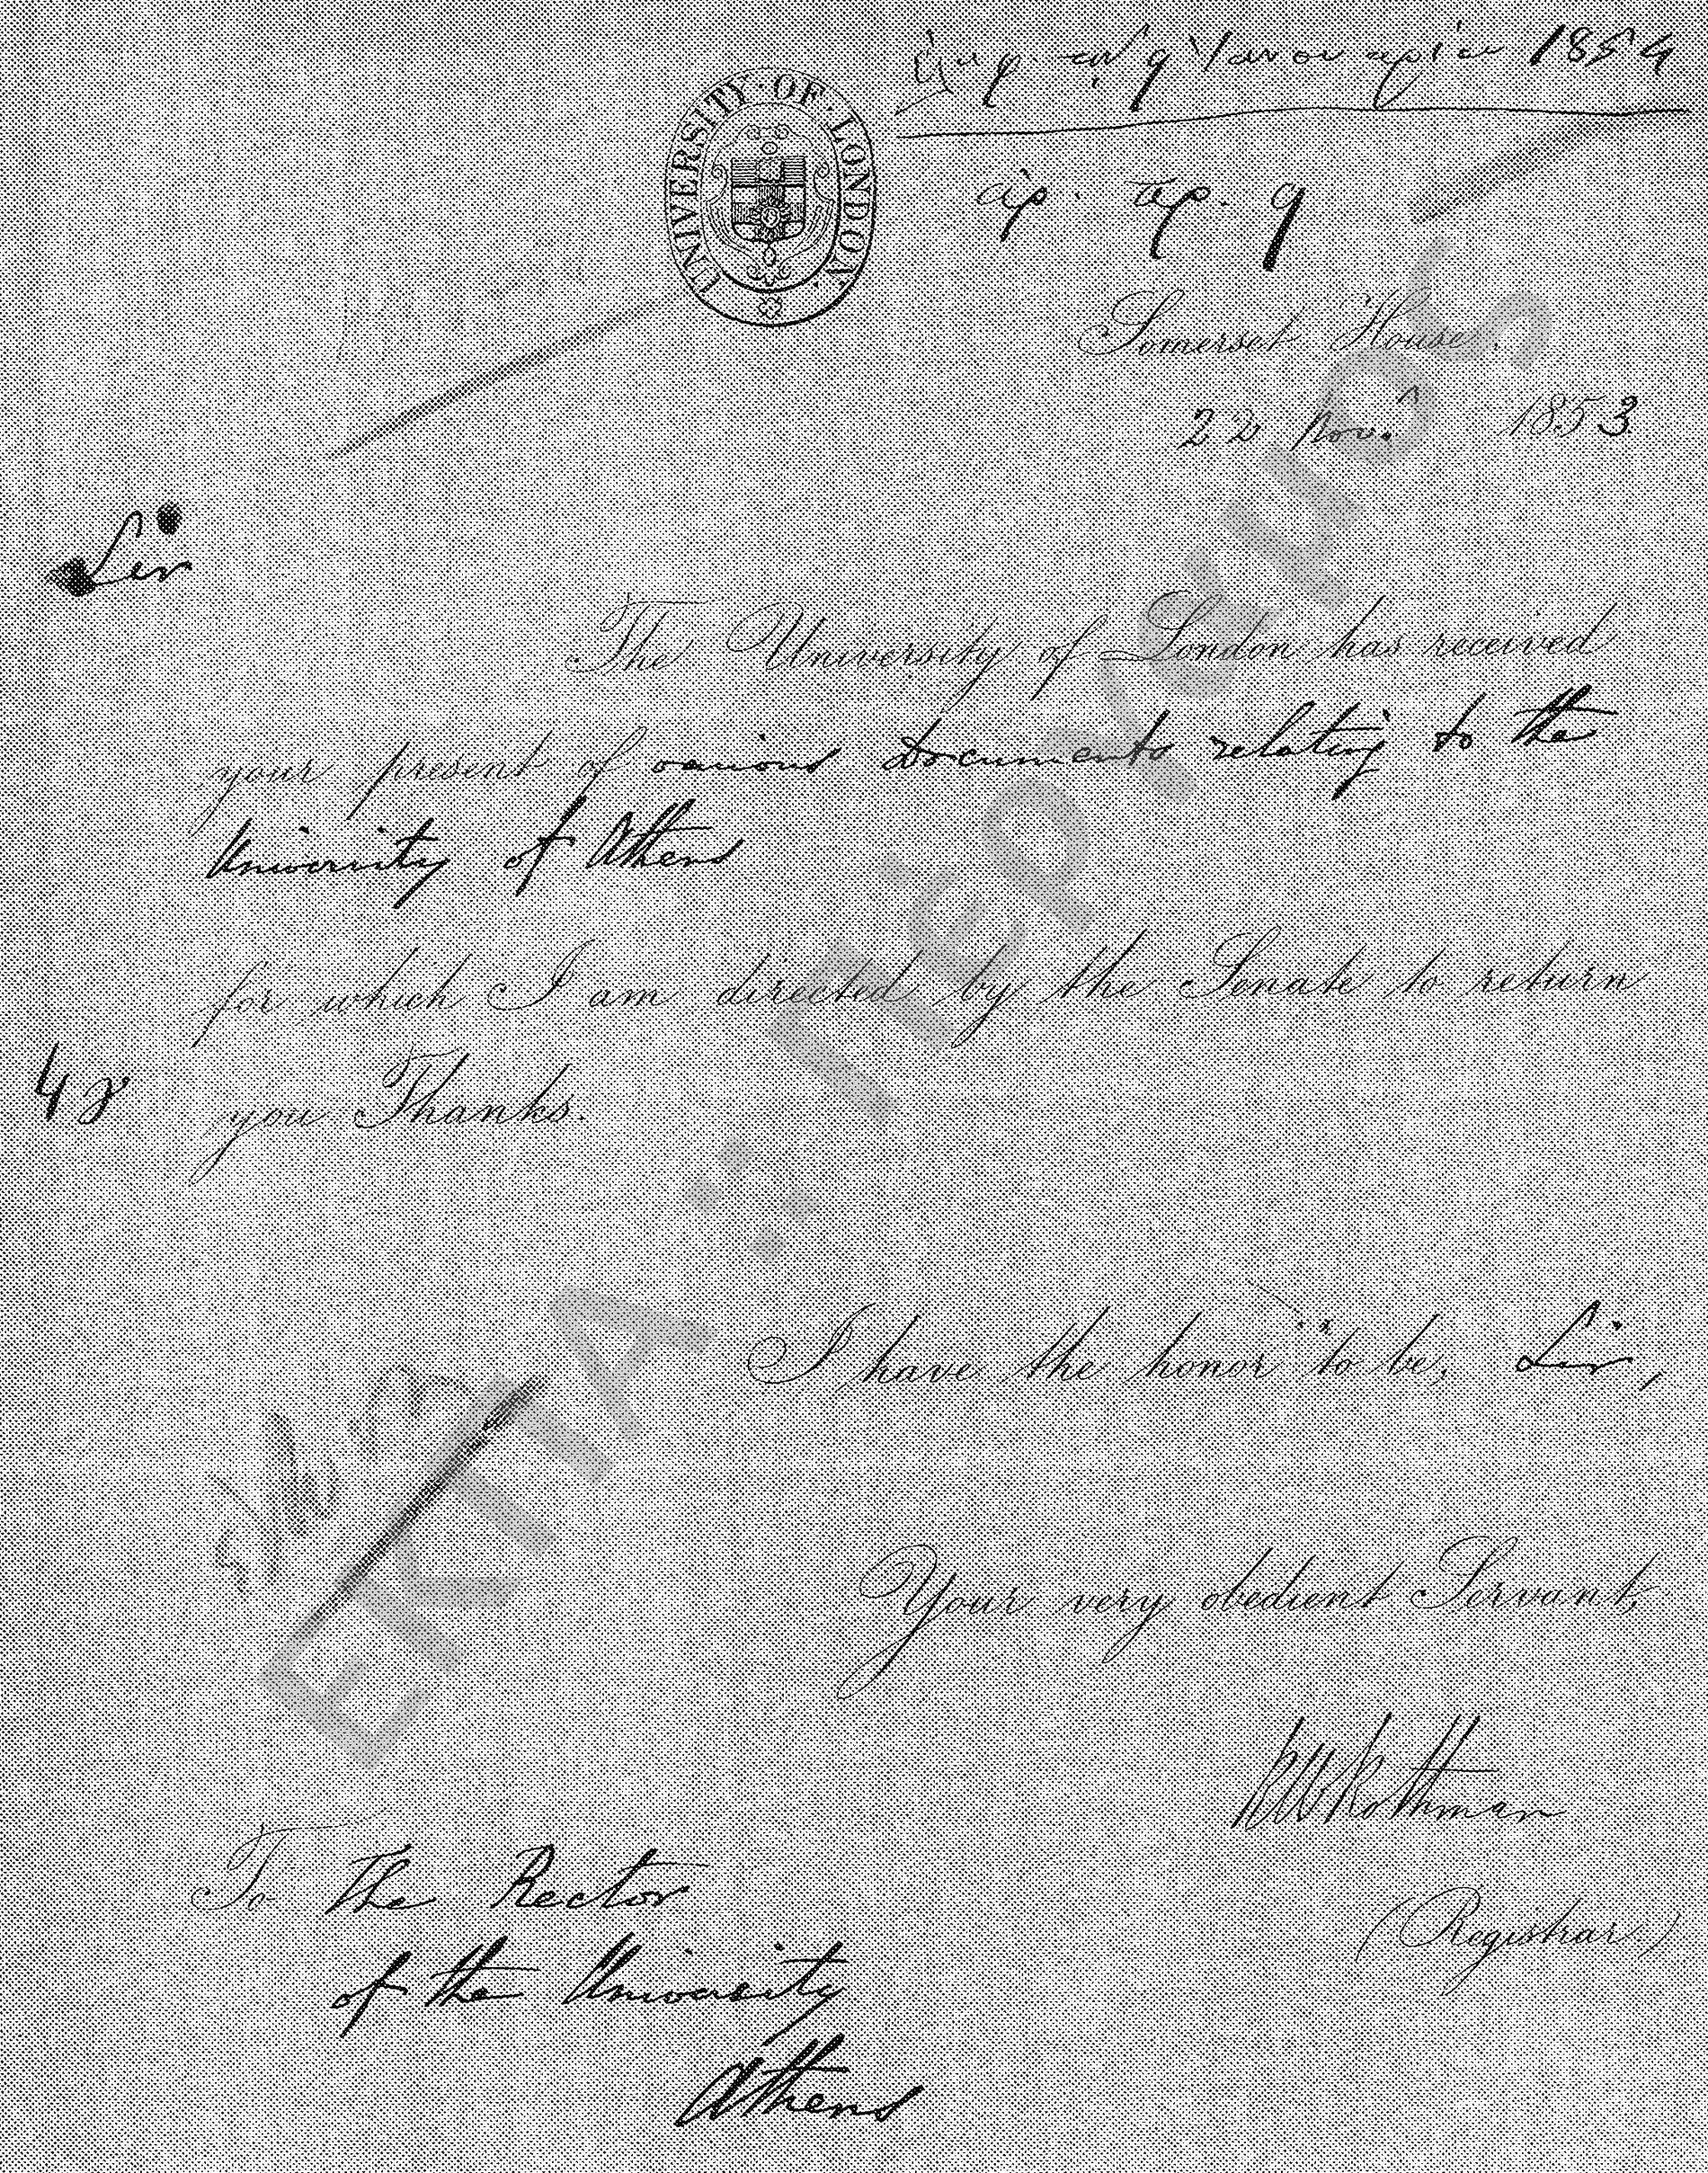 ἐλήφ. τῇ 9 Ἰανουαρίου 1854
UNIVERSITY · OF · LONDON ·
ἀρ. πρ. 9
Somerset House.
22 Nov. 1853
Sir
The University of London has received
your present of various Documents relating to the
University of Athens
for which I am directed by the Senate to return
you Thanks.
I have the honor to be, Sir,
Your very obedient Servant,
RWRothman
(Registrar.)
To The Rector
of the University
Athens